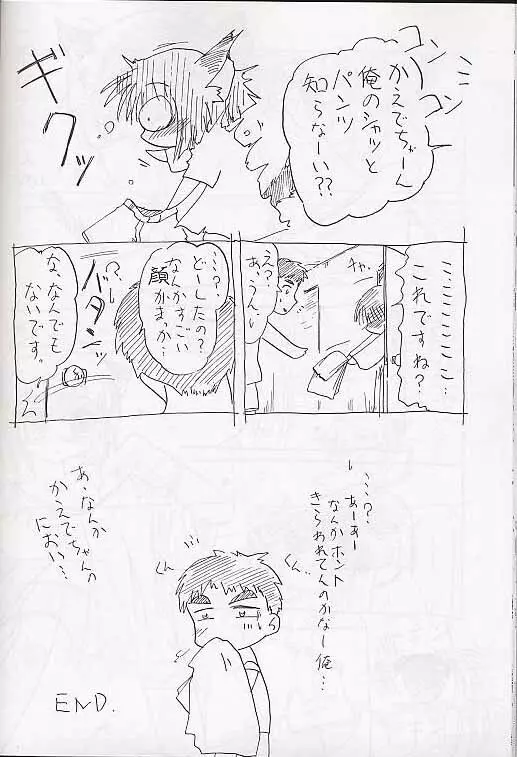 コンコン
コン
かえでちゃーん
俺のシャツと
パンツ
知らなーい??
ギクッ
こ、こここここ…
これですね?
チャ、
え?
あ、うん
…?
どーしたの?
なんかすごい
顔がまっか…
バタンッ
な、なんでも
ないです。
…?
あーあー
なんかホント
きらわれてんのかなー俺…
くん…
くん
あ、なんか
かえでちゃんの
におい…
END.